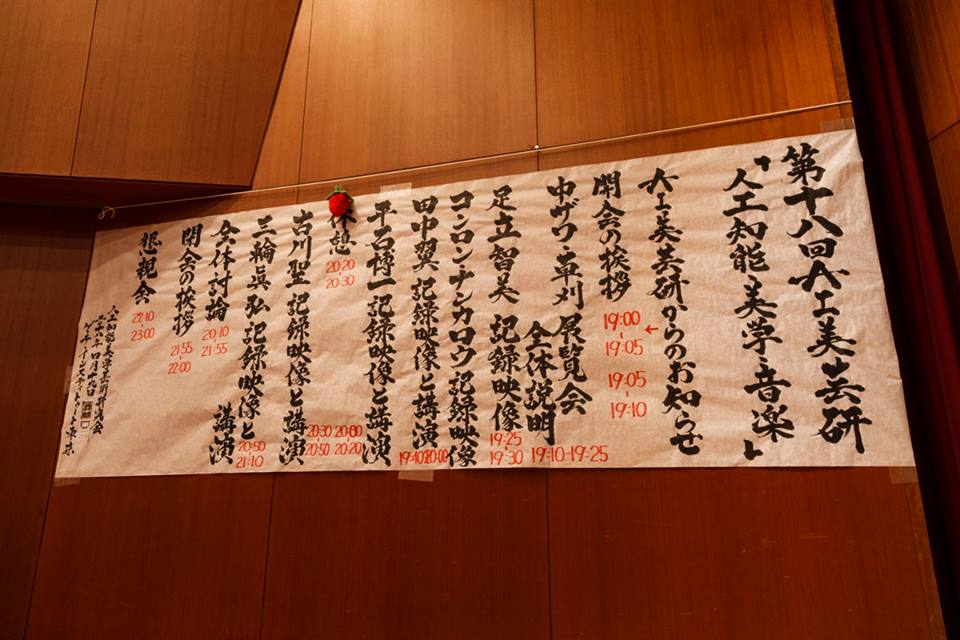 第十八回人工美芸研
「人工知能美学音楽」
人工美芸研からのお知らせ
開会の挨拶
19:00
19:05
←
19:05
19:10
中ザワ・草刈 展覧会
全体説明
19:10-19:25
足立智美 記録映像
19:25
19:30
コンロンナンカロウ記録映像
田中翼 記録映像と講演
19:40
20:00
平石博一 記録映像と講演
20:00
20:20
休憩
20:20
20:30
古川聖 記録映像と講演
20:30
20:50
三輪眞弘 記録映像と
講演
20:50
21:10
全体討論
20:10
21:55
閉会の挨拶
21:55
22:00
懇親会
22:10
23:00
人工知能美学芸術研究会